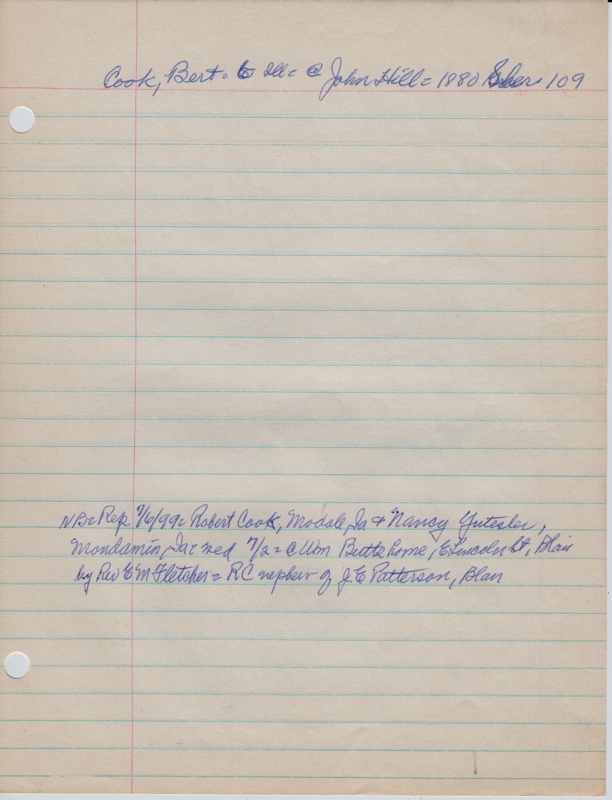 Cook, Bert = 6 Ill = @ John Hill = 1880 109
NB = Rep 7/6/99 = Robert Cook, Modale, Ia + Nancy
Mondamin, Ia = wed 7/2 = @ Wm Butts home, E Lincoln St, Blair
by Rev E M Fletcher = RC nephew of J. E Patterson, Blair